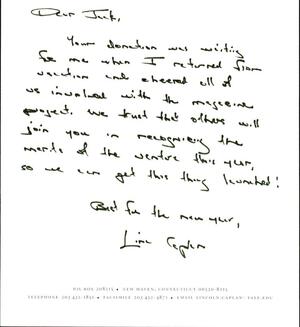 Dear Jack,
Your donation was waiting
for me when I returned from
vacation and cheered all of
us involved with the magazine
project. We trust that others will
join you in recognizing the
merits of the venture this year,
so we can get this thing launched!
Best for the new year,
Linc Caplan
P.O. BOX 208215 • NEW HAVEN, CONNECTICUT 06520-8215
TELEPHONE 203 432- • FACSIMILE 203 432- • EMAIL LINCOLN.CAPLAN@YALE.EDU